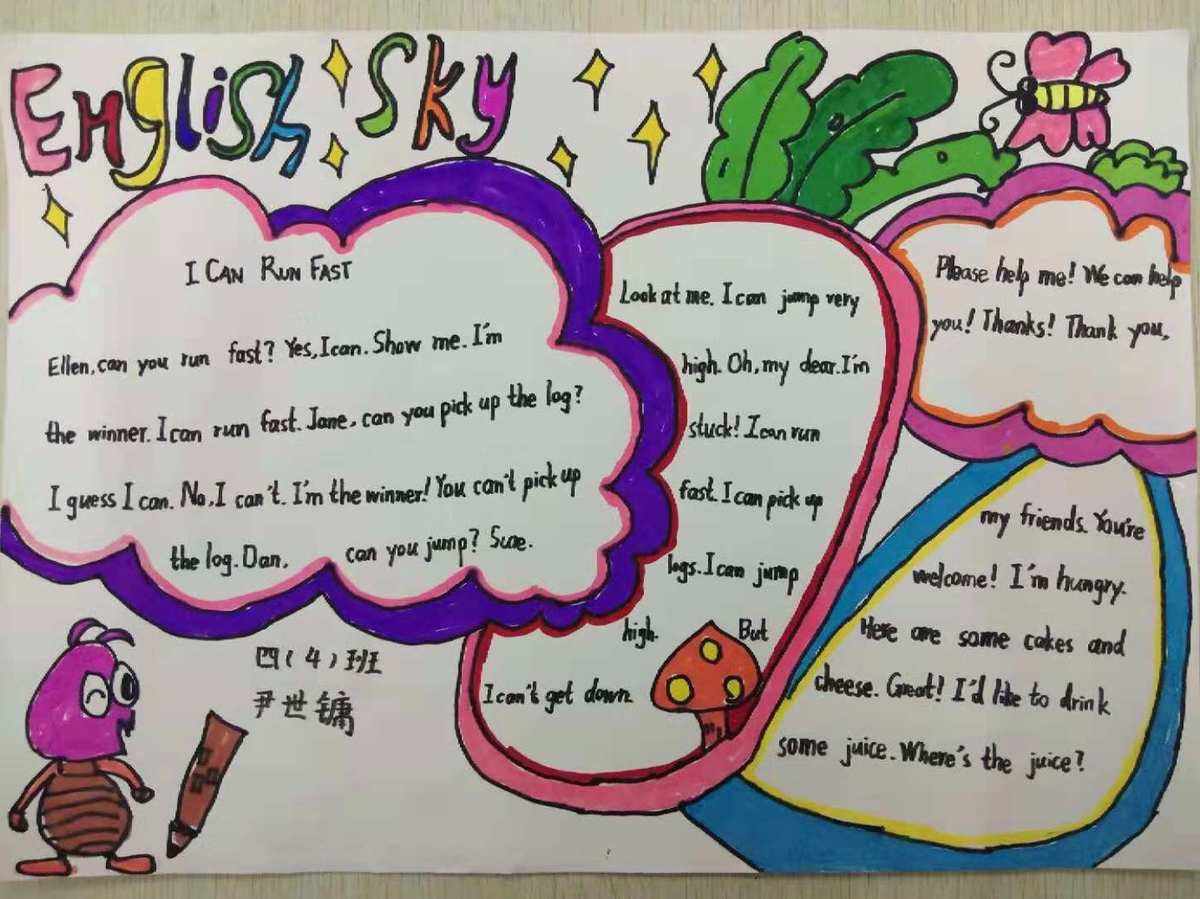 English Sky
I CAN RUN FAST
Ellen, can you run fast? Yes, I can. Show me. I'm
the winner. I can run fast. Jane, can you pick up the log?
I guess I can. No, I can't. I'm the winner! You can't pick up
the log. Dan, can you jump? Sure.
Look at me. I can jump very
high. Oh, my dear. I'm
stuck! I can run
fast. I can pick up
logs. I can jump
high. But
I can't get down.
Please help me! We can help
you! Thanks! Thank you,
my friends. You're
welcome! I'm hungry.
Here are some cakes and
cheese. Great! I'd like to drink
some juice. Where's the juice?
四(4)班
尹世镛